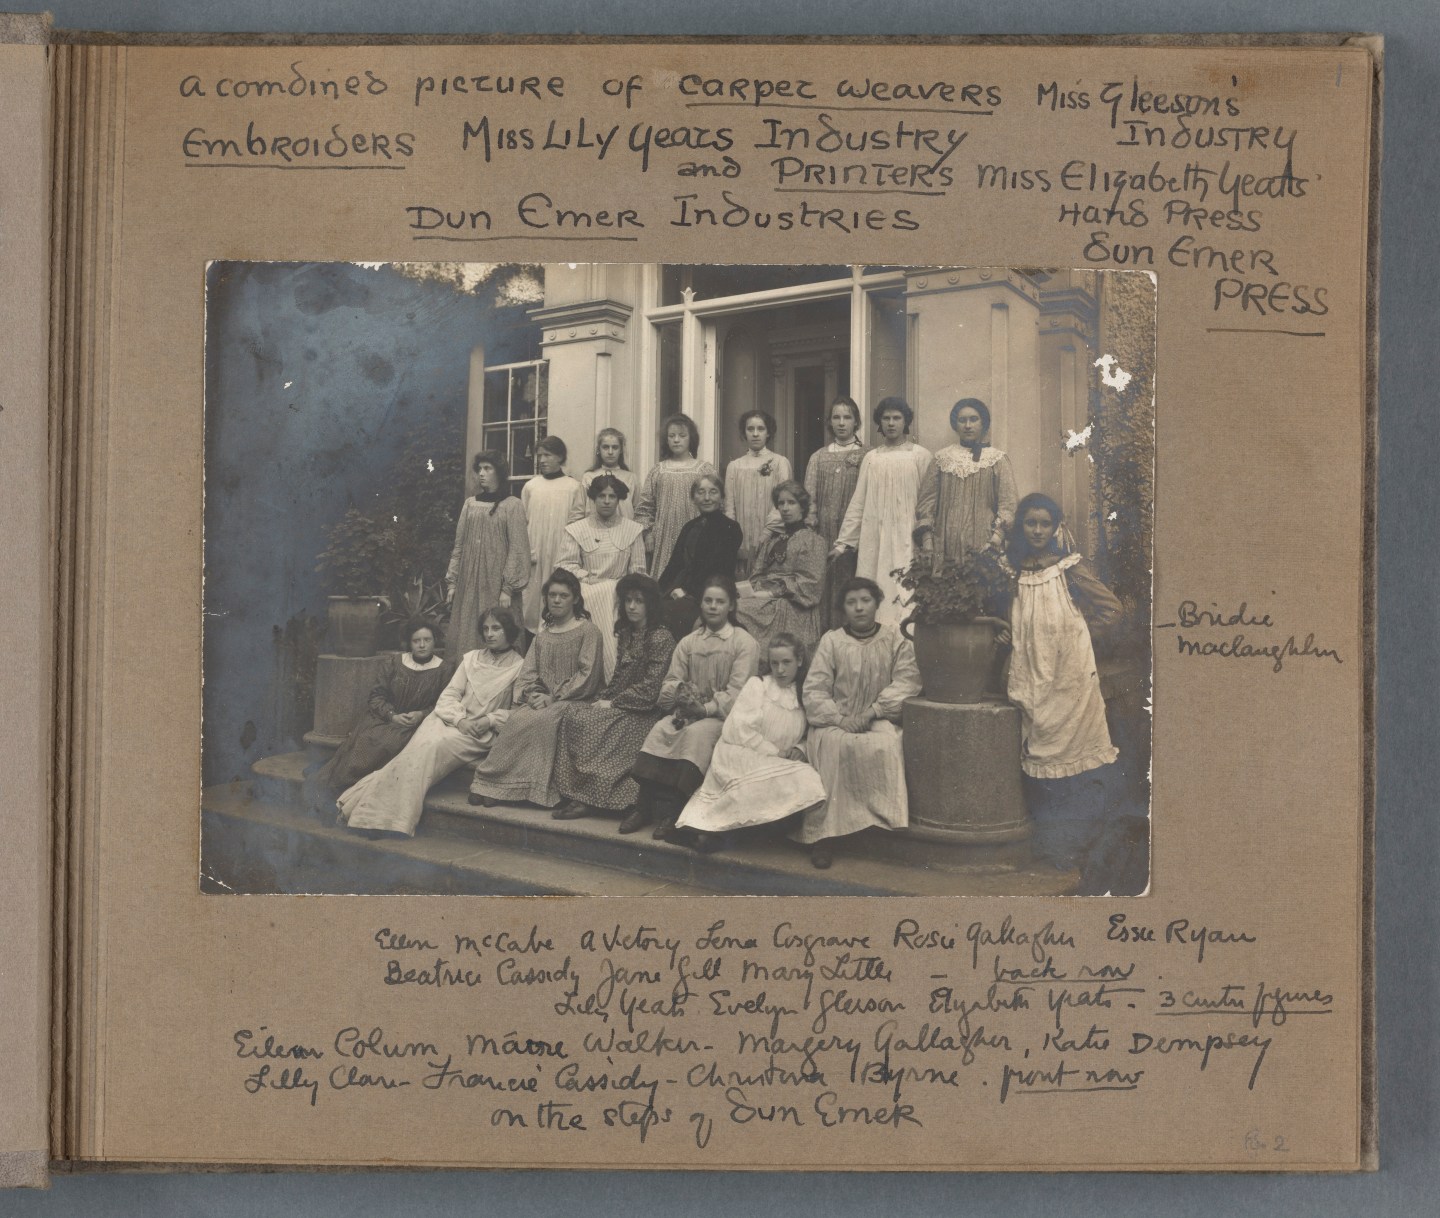 A combined picture of carpet weavers Miss Gleeson's
Industry
Embroiders Miss Lily Yeats Industry
and Printers Miss Elizabeth Yeats'
Hand Press
Dun Emer Industries
Dun Emer
Press
1
– Bridie
Maclaughlin
Eileen McCabe A Victory Lena Cosgrave Rosie Gallagher Essie Ryan
Beatrice Cassidy Jane Gill Mary Little – back row.
Lily Yeats Evelyn Gleeson Elizabeth Yeats – 3 centre figures
Eileen Colum, Máire Walker – Margery Gallagher, Katie Dempsey
Lilly Clare – Francie Cassidy – Christina Byrne. front row
on the steps of Dun Emer